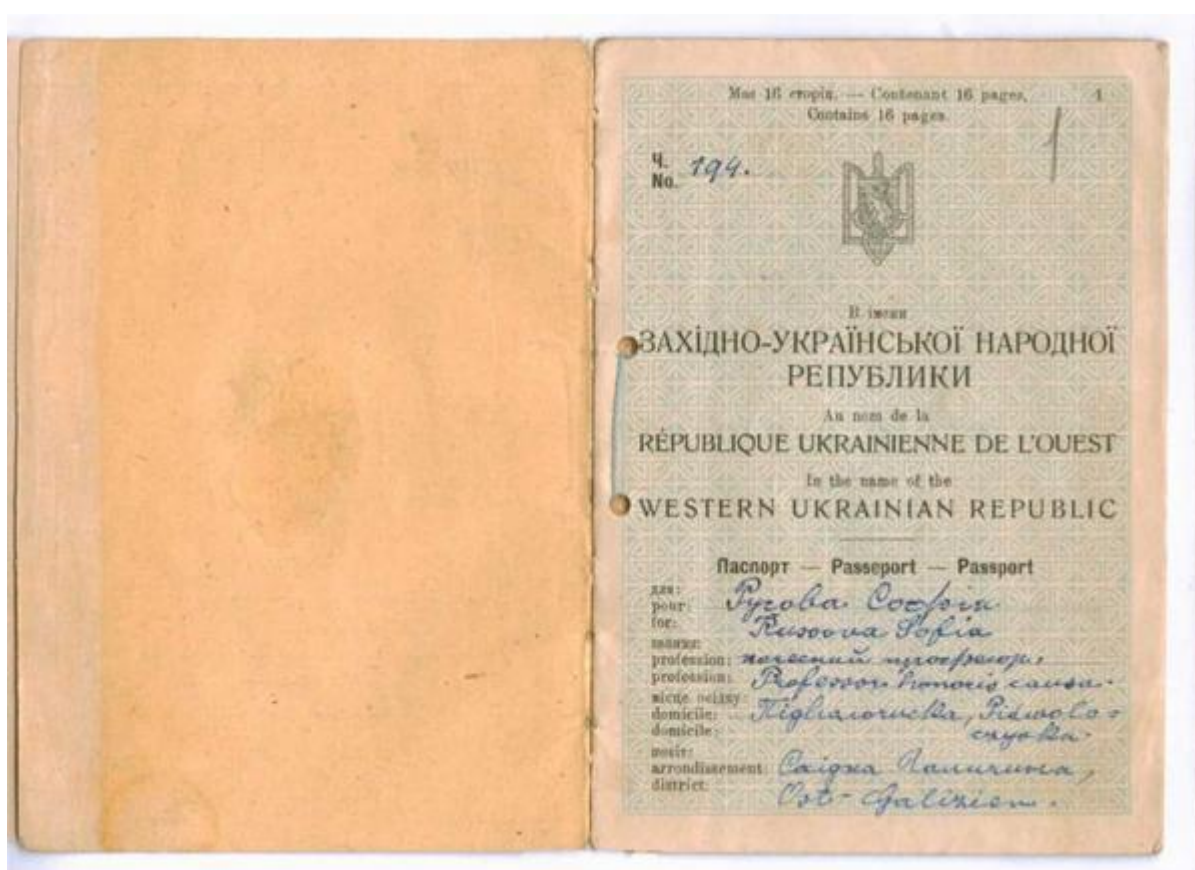 Має 16 сторін. — Contenant 16 pages. 1
Contains 16 pages.
1
Ч.
No. 194.
В імени
ЗАХІДНО-УКРАЇНСЬКОЇ НАРОДНОЇ
РЕПУБЛИКИ
Au nom de la
RÉPUBLIQUE UKRAINIENNE DE L'OUEST
In the name of the
WESTERN UKRAINIAN REPUBLIC
Паспорт — Passeport — Passport
для:
pour: Русова Софія
for: Russova Sofia
звання:
profession: почесний професор,
profession: Professor honoris causa.
місце осідку
domicile:
domicile:
повіт:
arrondissement: Східна Галичина,
district: Ost-Galizien.